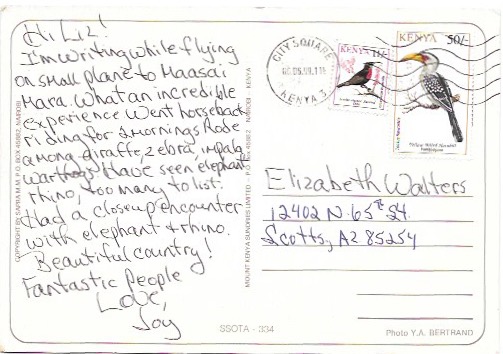 Hi Liz!
I'm writing while flying
on small plane to Maasai
Mara. What an incredible
experience Went horseback
riding for 2 mornings Rode
among giraffe, zebra, impala,
warthogs Have seen elephant
rhino, too many to list.
Had a close up encounter
with elephant & rhino.
Beautiful country!
Fantastic People
Love,
Joy
CITY SQUARE
KENYA
KENYA
KENYA 50/-
Yellow Billed Hornbill
Elizabeth Walters
12402 N. 65th St.
Scotts, AZ 85254
COPYRIGHT BY SAPRA M.M. P.O. BOX 45882, NAIROBI
MOUNT KENYA SUNDRIES LIMITED - P.O. BOX 45882 NAIROBI - KENYA
SSOTA - 334
Photo Y.A. BERTRAND